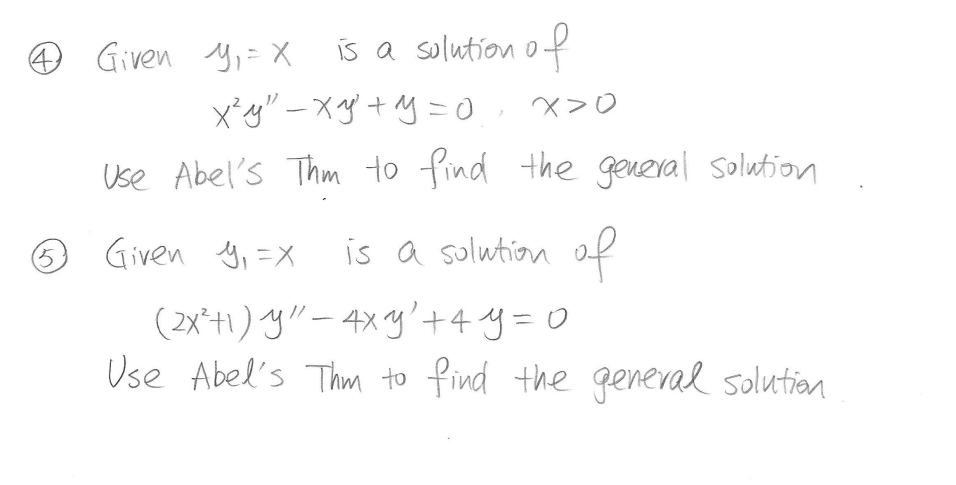 ④ Given y₁ = x is a solution of
x²y'' − xy' + y = 0, x > 0
Use Abel's Thm to find the general solution.
⑤ Given y₁ = x is a solution of
(2x²+1) y'' − 4xy' + 4y = 0
Use Abel's Thm to find the general solution